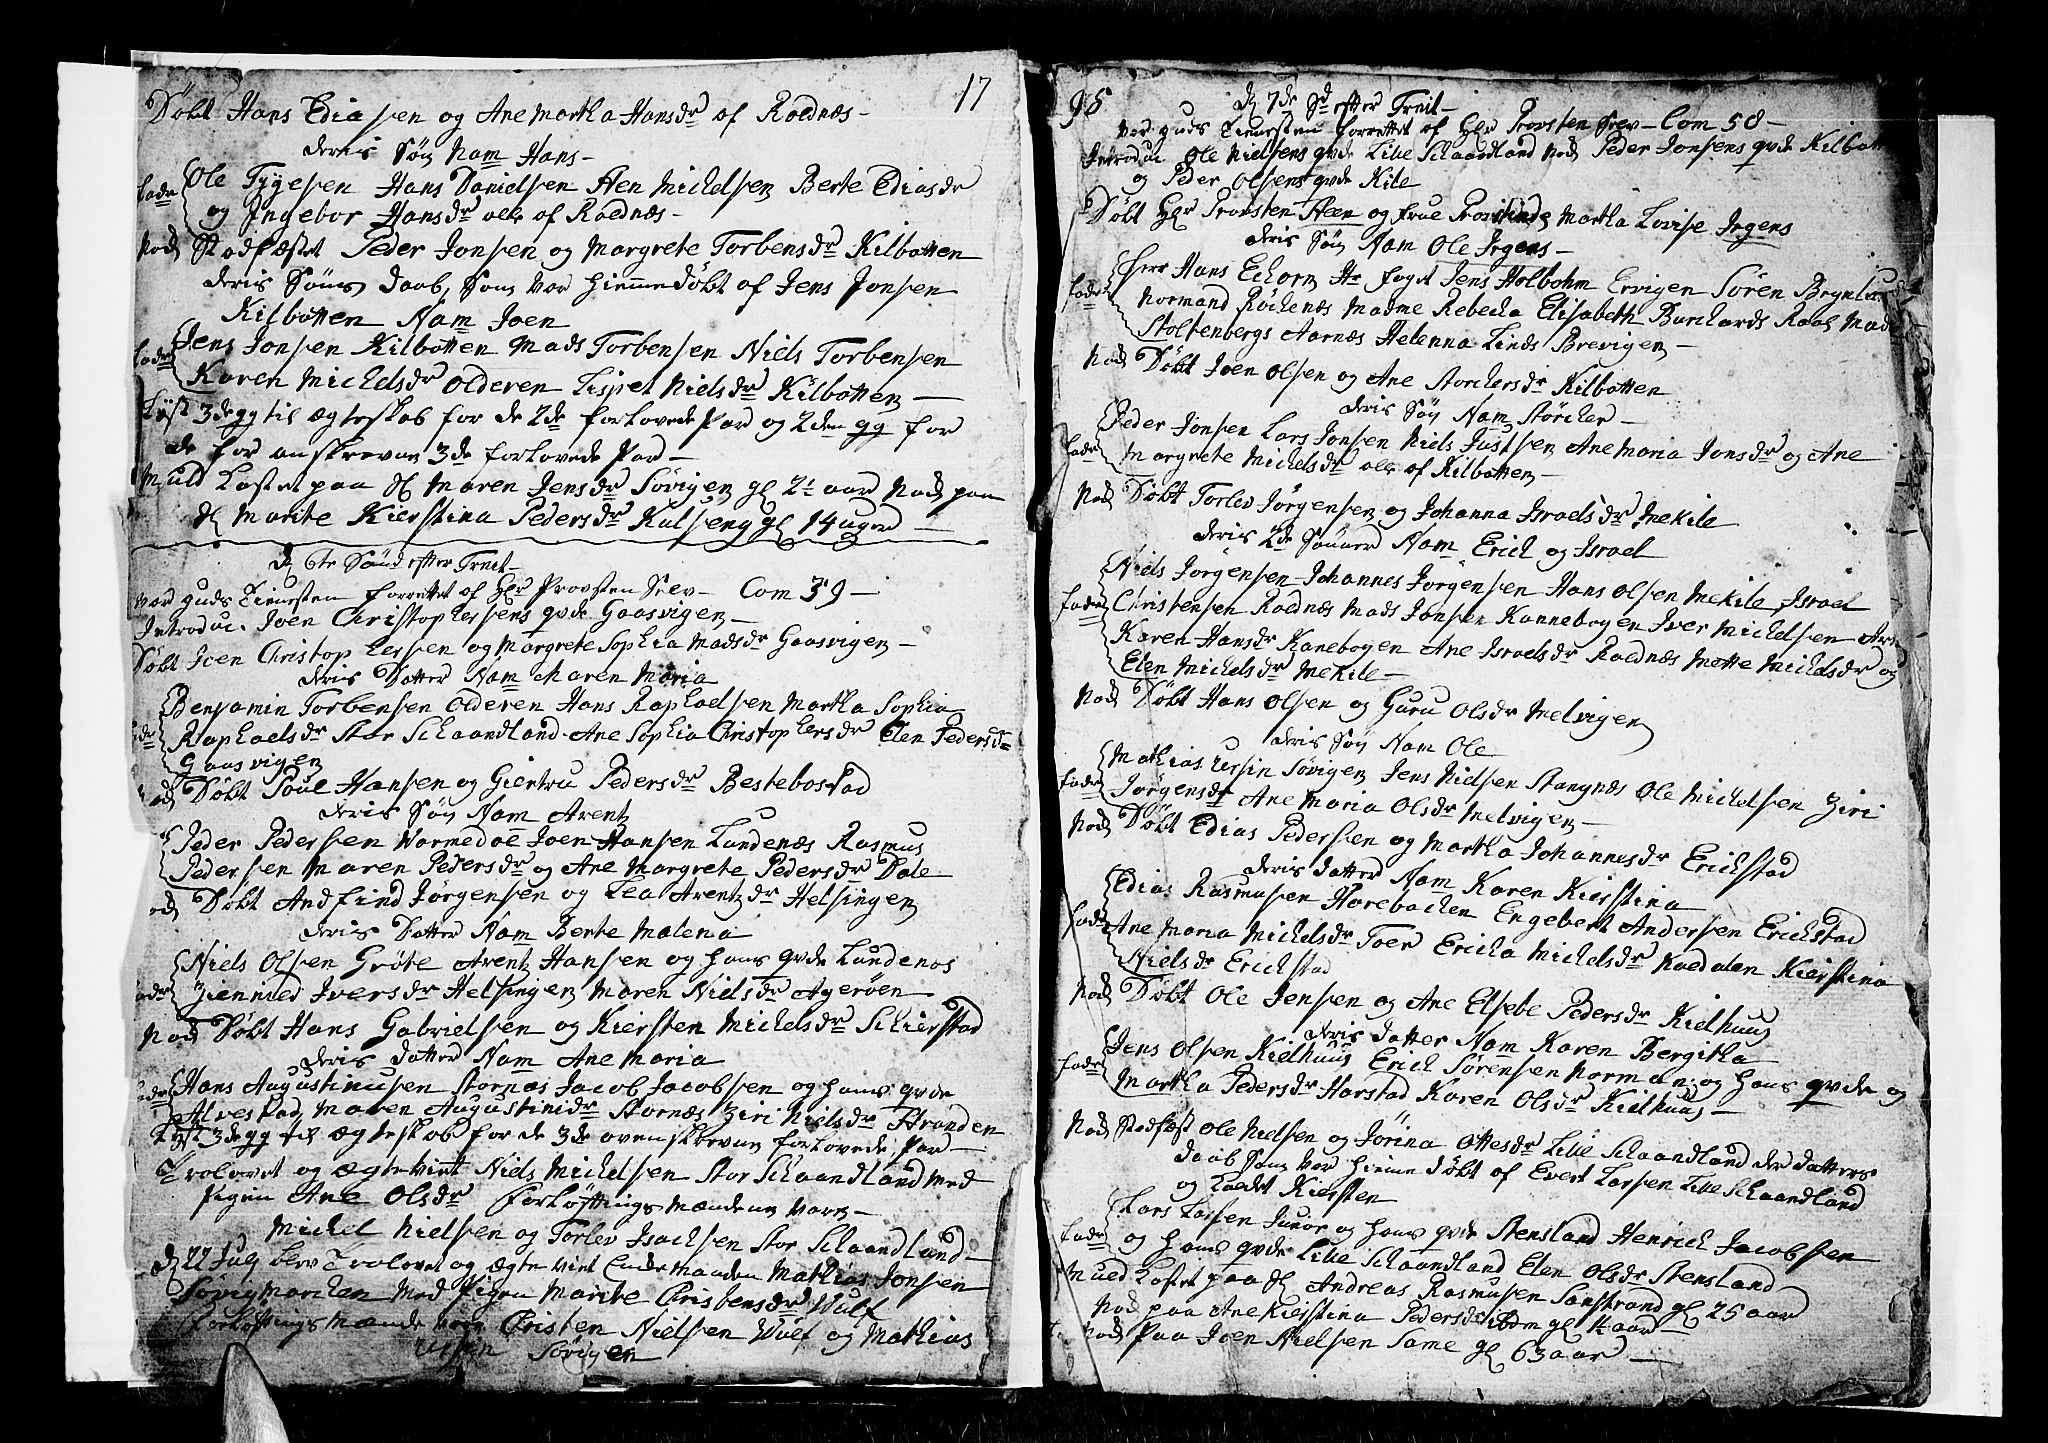 17
Døbt Hans Ediasen og Ane Martha Hansdr af Roednæs -
deris Søn Nam Hans -
fadr Ole Tygesen Hans Danielsen Aen Michelsen Berte Ediasdr
og Ingebor Hansdr alle af Roednæs -
Nock Stadfæstet Peder Jonsen og Margrete Torbensdr Kilbotten
deris Søns Daab, Som var hiemmedøbt af Jens Jonsen
Kilbotten Nam Joen
fadr Jens Jonsen Kilbotten Mads Torbensen Niels Torbensen
Karen Michelsdr Olderen Lispet Nielsdr Kilbotten -
Lyst 3de gg til ægteskab for de 2de forlovede Par og 2den gg for
de for anskrevne 3de forlovede Par -
Muld Kastet paa Maren Jensdr Sørvigen gl 2½ aar Nock paa
Marite Kierstina Pedersdr Kulseng gl 14 uger -
D 6te Sønd efter Trnit -
var guds Tienesten forrettet af Hr Provsten Selv - Com 39 -
Introduc. Joen Christophersens qvde Gaasvigen -
Døbt Joen Christophersen og Margrete Sophia Madsdr Gaasvigen -
deris Datter Nam Maren Maria
fadr Benjamin Torbensen Olderen Hans Raphaelsen Martha Sophia
Raphaelsdr Stor Schaandland Ane Sophia Christophersdr Elen Pedersdr
Gaasvigen
Nock Døbt Poul Hansen og Giertru Pedersdr Bestebostad
deris Søn Nam Arentz
Peder Pedersen Vormedoe Joen Hansen Lundenæs Rasmus
Pedersen Maren Pedersdr og Ane Margrete Pedersdr Dale
Nock Døbt Andfind Jørgensen og Lea Arentzdr Helsingen
deris Datter Nam Berte Malena
fadr Niels Olsen Grøte Arentz Hansen og hans qvde Lundenæs
Ziennied Iversdr Helsingen Maren Nielsdr Agerøen
Nock Døbt Hans Gabrielsen og Kiersten Michelsdr Schierstad
deris datter Nam Ane Maria
fadr Hans Augustinusen Stornæs Jacob Jacobsen og hans qvde
Alvestad Maren Augustinidr Stornæs Ziri Nielsdr Stranden
Lyst 3de gg til ægteskab for de 3de ovenskrevne forlovede Par -
Trolovet og ægteviet Niels Michelsen Stor Schaandland med
pigen Ane Olsdr forløftnings mændene varn -
Michel Nielsen og Torlev Isachsen Stor Schaandland -
D 22 July blev Trolovet og ægte viet Enke manden Mathias Jonsen
Sørvigmarchen med Pigen Marite Christensdr Vulf
forløftnings mænde varn Christen Nielsen Vulf og Mathias
Ursin Sørvigen
95
D 7de Sd efter Trnit -
var guds Tienesten forrettet af Hr Provsten Selv - Com 58 -
Introduc Ole Nielsens qvde Lille Schaandland Nock Peder Jonsens qvde Kilbotten
og Peder Olsens qvde Kile
Døbt Hr Provsten Aeen og frue Provstinde Martha Lovise Irgens
deris Søn Nam Ole Irgens -
fadr Herr Hans Echorn Hr foget Jens Holbohm Ervigen Søren Brynlu
Normand Røchenæs Madme Rebecka Elisabeth Burchards Raae Mad
Stoltenbergs Aarnæs Helenna Linds Brevigen -
Nock Døbt Joen Olsen og Ane Storchersdr Kilbotten
deris Søn Nam Storcher -
fadr Peder Jonsen Lars Jonsen Niels Justsen Ane Maria Jonsdr og Ane
Margrete Michelsdr alle af Kilbotten -
Nock Døbt Torlev Jørgensen og Johanna Israelsdr Mekile
deris 2de Sønner Nam Erich og Israel
fadr Niels Jørgensen Johannes Jørgensen Hans Olsen Mekile Israel
Christensen Roednæs Mads Jonsen Kannebogen Iver Michelsen
Karen Hansdr Kanebogen Ane Israelsdr Roednæs Motte Michelsdr og
Elen Michelsdr Mekile -
Nock Døbt Hans Olsen og Guru Olsdr Melvigen
deris Søn Nam Ole
fadr Mathias Ursin Sørvigen Jens Nielsen Stangnæs Ole Michelsen Ziri
Jørgensdr Ane Maria Olsdr Melvigen -
Nock Døbt Edias Pedersen og Martha Johannesdr Erichstad
deris datter Nam Karen Kierstina
fadr Edias Rasmusen Harebachen Engebert Andersen Erichstad
Ane Maria Michelsdr Toer Ericka Michelsdr Kaedalen Kierstina
Nielsdr Erichstad
Nock Døbt Ole Jensen og Ane Elsebe Pedersdr Kielhuug
deris datter Nam Karen Bergitha
fadr Jens Olsen Kielhuus Erich Sørensen Norman og hans qvde og
Martha Pedersdr Harstad Karen Olsdr Kielhuus -
Nock Stadfæst Ole Nielsen og Jørina Ottesdr Lille Schaandland der datters
daab Som var hieme døbt af Evert Larsen Lille Schaandland
og Kaldet Kiersten
fadr Lars Larsen Junor og hans qvde Stensland Henrich Jacobsen
og hans qvde Lille Schaandland Elen Olsdr Stensland
Muld Kastet paa Andreas Rasmusen Sanstrand gl 25 aar
Nock paa Ane Kierstina Pedersdr ibdm gl ½ aar -
Nock Paa Joen Nielsen Same gl 63 aar -